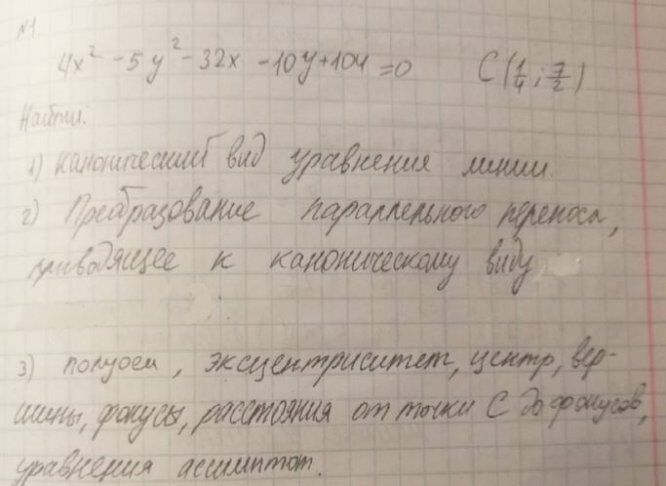 №1
4x² - 5y² - 32x - 10y + 104 = 0 C(1/4; 7/2)
Найти:
1) канонический вид уравнения линии.
2) Преобразование параллельного переноса,
приводящее к каноническому виду
3) полуоси, эксцентриситет, центр, вер-
шины, фокусы, расстояния от точки C до фокусов,
уравнения асимптот.